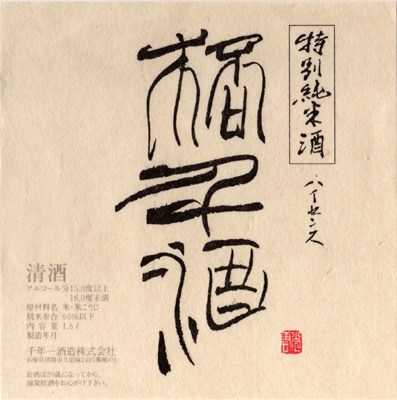 特別純米酒
ハイセンス
酒
清酒
アルコール分15.0度以上
16.0度未満
原材料名 米・米こうじ
精米歩合 60%以下
内容量 1.8ℓ
製造年月
千年一酒造株式会社
兵庫県淡路市久留麻
お酒は20歳になってから。
適量飲酒をお心がけ下さい。